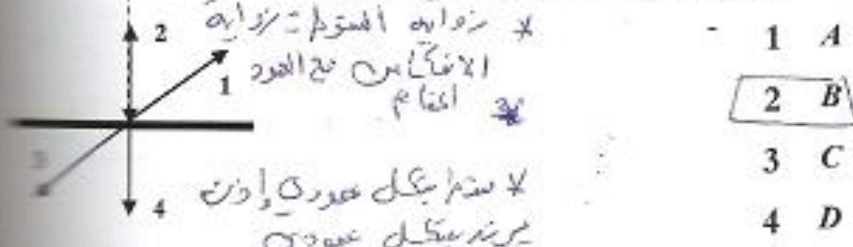 * زاوية السقوط = زاوية
الانعكاس مع العمود
المقام
* سقط بشكل عمودي إذن
يرتد بشكل عمودي
2
1
3
4
1 A
2 B
3 C
4 D